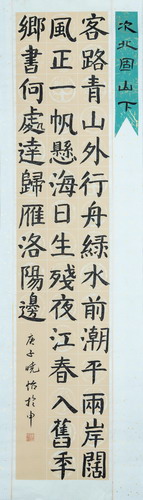 次北固山下
客路青山外行舟綠水前潮平兩岸闊
風正一帆懸海日生殘夜江春入舊秊
鄉書何處達歸雁洛陽邊
庚子曉怡於申